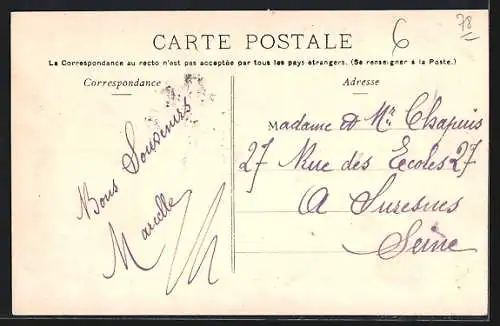 78
6
CARTE POSTALE
La Correspondance au recto n'est pas acceptée par tous les pays étrangers. (Se renseigner à la Poste.)
Correspondance
Bons Souvenirs
Marcelle
Adresse
Madame & Mr Chapuis
27 Rue des Ecoles 27
A Suresnes
Seine